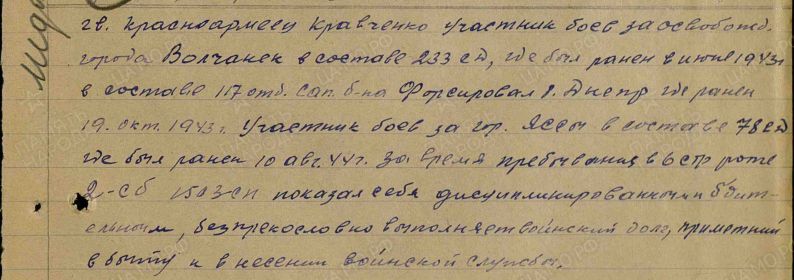 гв. красноармеец Кравченко участник боев за освобожд.
города Волчанск в составе 233 сд, где был ранен в июне 1943г
в составе 117 отд. сап. б-на Форсировал р. Днепр где ранен
19. окт. 1943г. участник боев за гор. Яссы в составе 78 сд
где был ранен 10 авг. 44г. за время пребывания в 6 стр роте
2-сб 1503-сп показал себя дисциплинированным бдит-
ельным, безпрекословно выполняет воинский долг, приметный
в быту и в несении воинской службы.